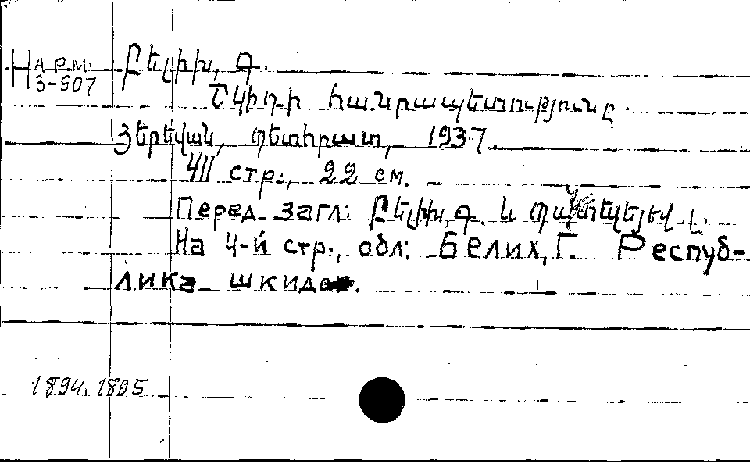 Н АРМ. 3-507
Բելիխ, Գ.
Շկիդի հանրապետությունը.
Յերեվան, Պետհրատ, 1937.
411 стр., 22 см.
Перед загл: Բելիխ, Գ. և Պանտելեյեվ Լ.
На 4-й стр., обл: Белих, Г. Респуб-
лика шкида.
1894, 1895